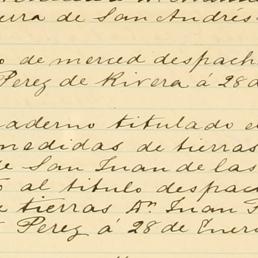 erra de San Andrés
o de merced despach
Perez de Rivera á 28 de
aderno titulado e
medidas de tierras
e San Juan de las
o al titulo despac
e tierras Dn Juan
Perez á 28 de Ener